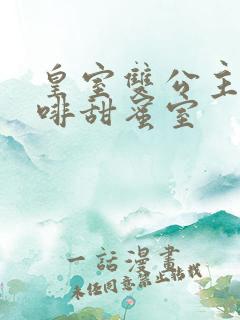 皇室雙公主
啡甜蜜室
一話漫畫
未經同意禁止轉載